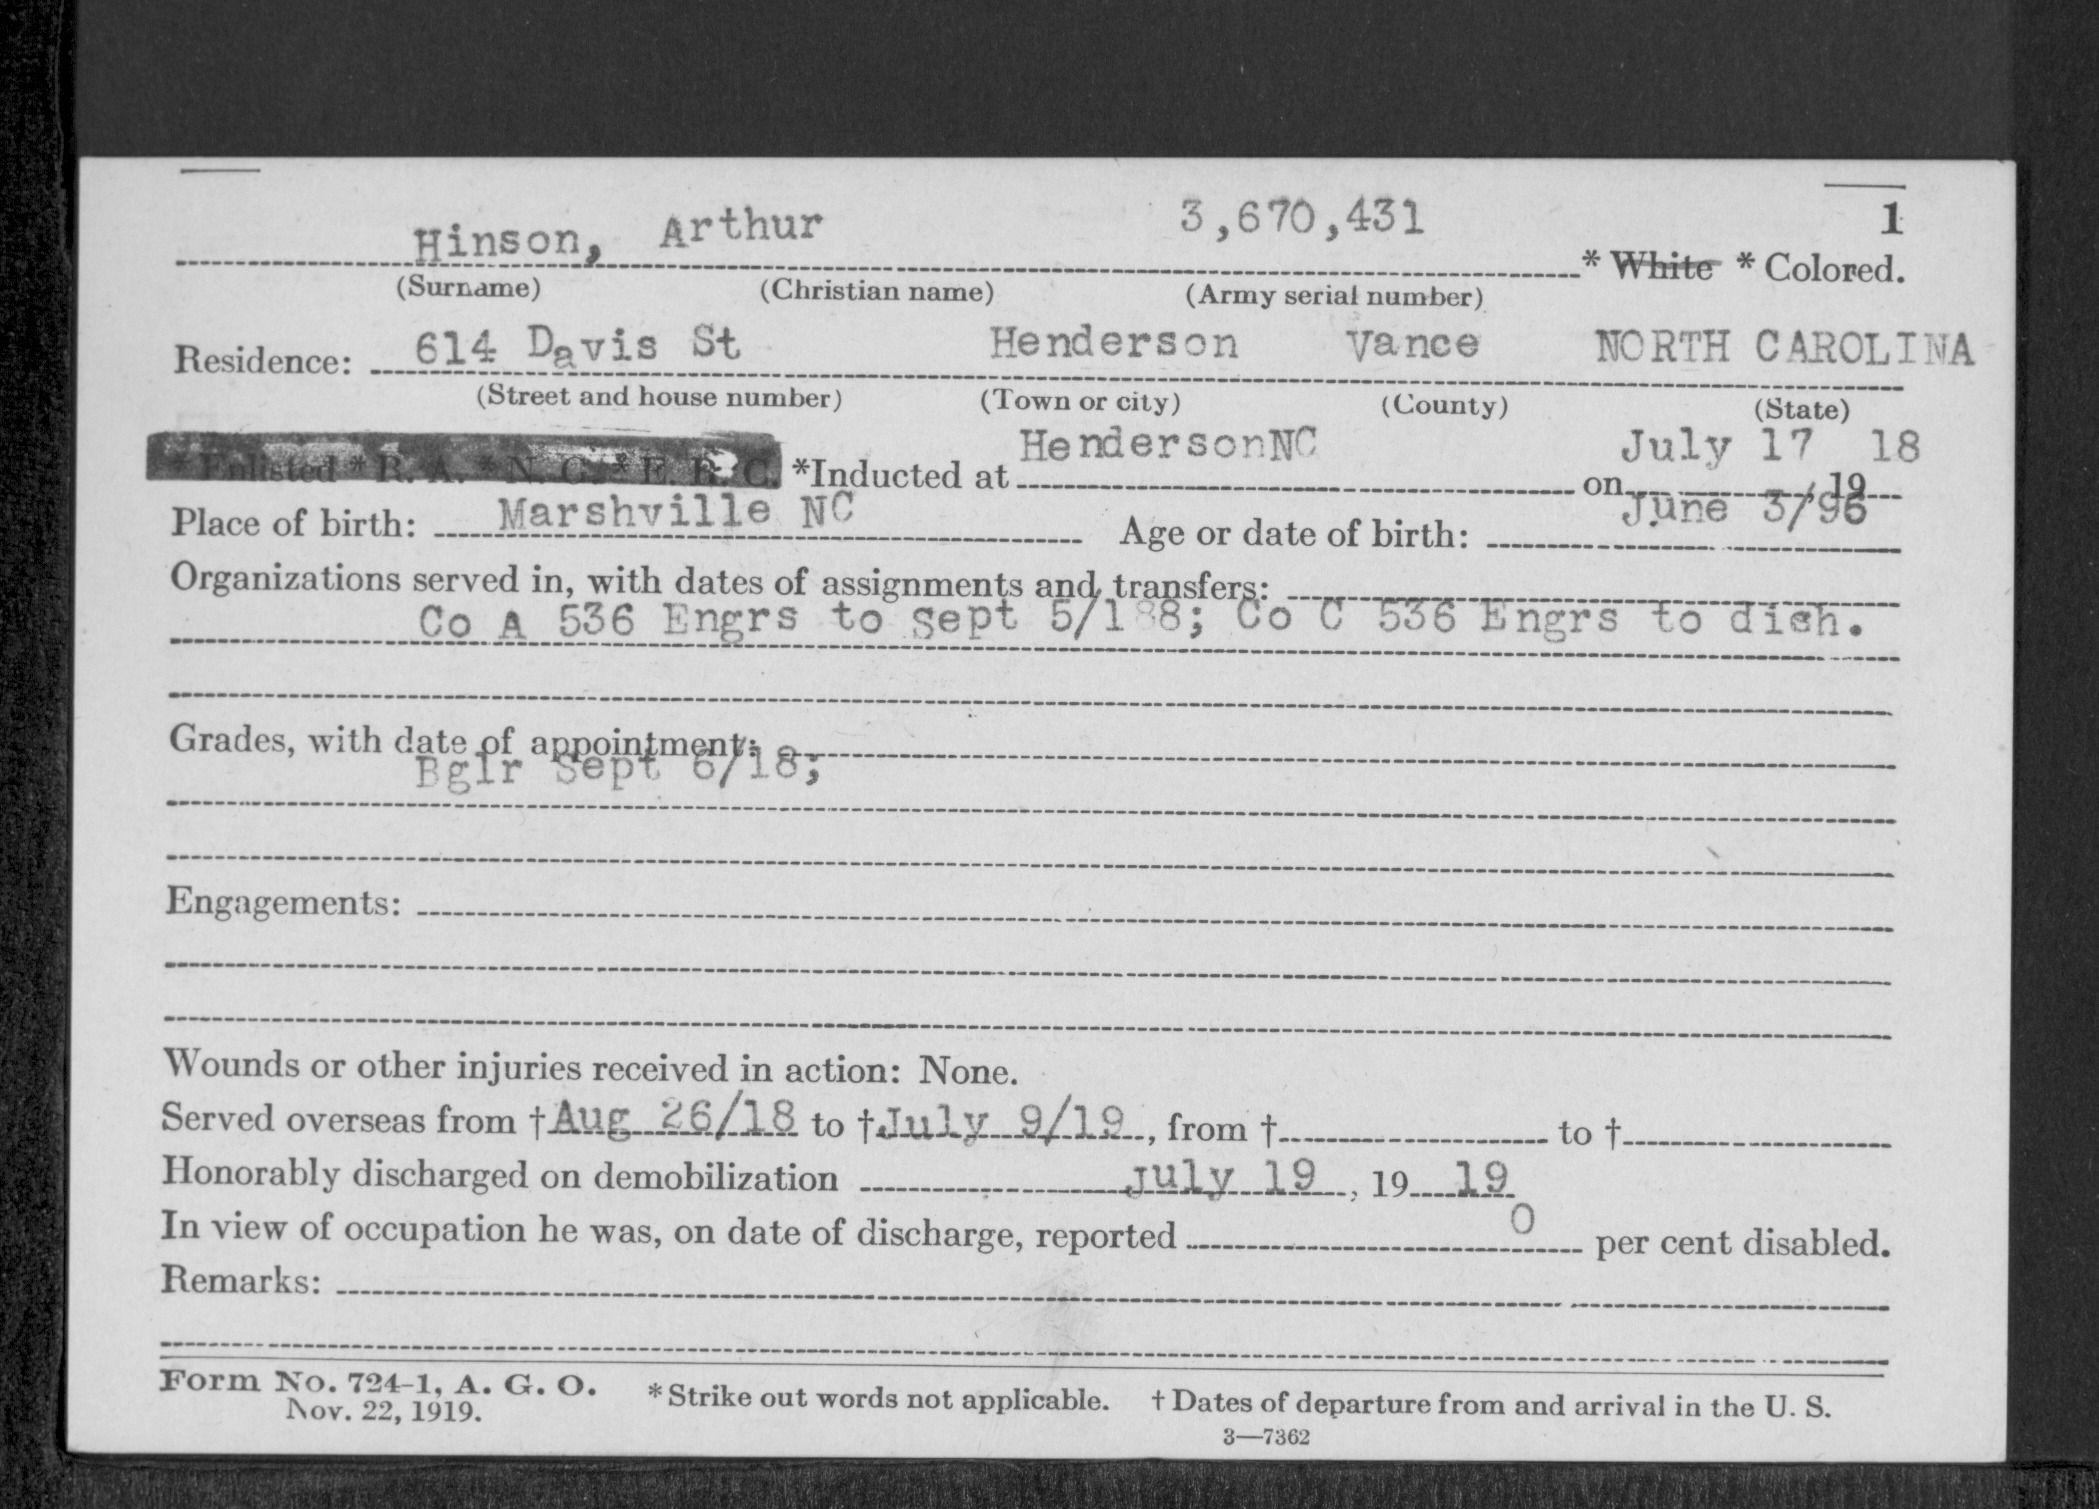 Hinson, Arthur 3,670,431 1
* White * Colored.
(Surname) (Christian name) (Army serial number)
Residence: 614 Davis St Henderson Vance NORTH CAROLINA
(Street and house number) (Town or city) (County) (State)
* Enlisted * R. A. * N. G. * E. R. C. *Inducted at HendersonNC on July 17, 19 18
Place of birth: Marshville NC Age or date of birth: June 3/96
Organizations served in, with dates of assignments and transfers:
Co A 536 Engrs to sept 5/188; Co C 536 Engrs to disch.
Grades, with date of appointment:
Bglr Sept 6/18;
Engagements:
Wounds or other injuries received in action: None.
Served overseas from †Aug 26/18 to †July 9/19, from † to †
Honorably discharged on demobilization July 19, 19 19
In view of occupation he was, on date of discharge, reported 0 per cent disabled.
Remarks:
Form No. 724-1, A. G. O. *Strike out words not applicable. † Dates of departure from and arrival in the U. S.
Nov. 22, 1919.
3—7362